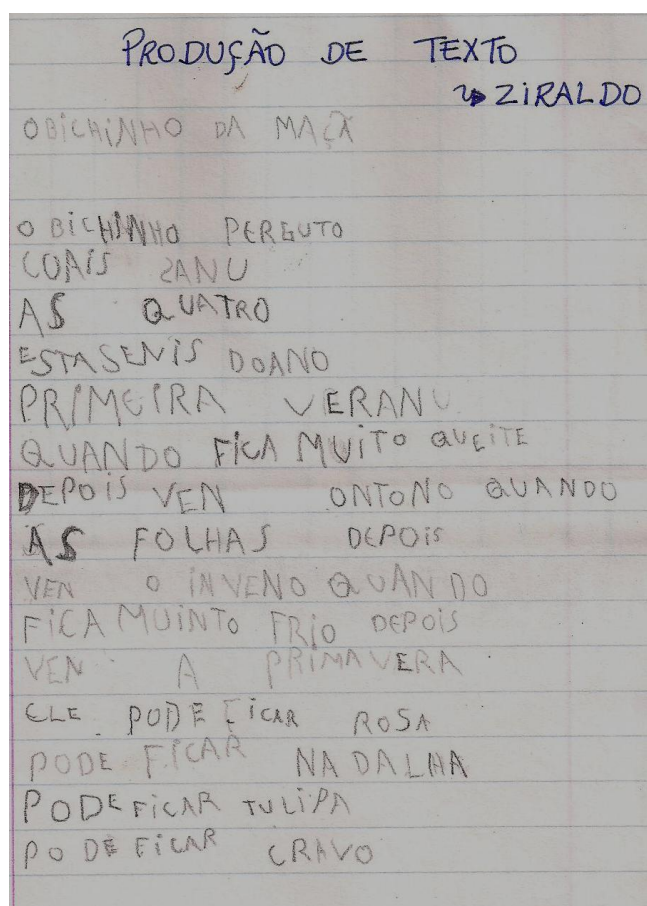 PRODUÇÃO DE TEXTO
↳ ZIRALDO
OBICHINHO DA MAÇÃ
O BICHINHO PERGUTO
COAIS SANU
AS QUATRO
ESTASENIS DOANO
PRIMEIRA VERANU
QUANDO FICA MUITO QUEITE
DEPOIS VEN ONTONO QUANDO
AS FOLHAS DEPOIS
VEN O INVENO QUANDO
FICA MUINTO FRIO DEPOIS
VEN A PRIMAVERA
ELE PODE FICAR ROSA
PODE FICAR NADALHA
PODEFICAR TULIPA
PODEFICAR CRAVO